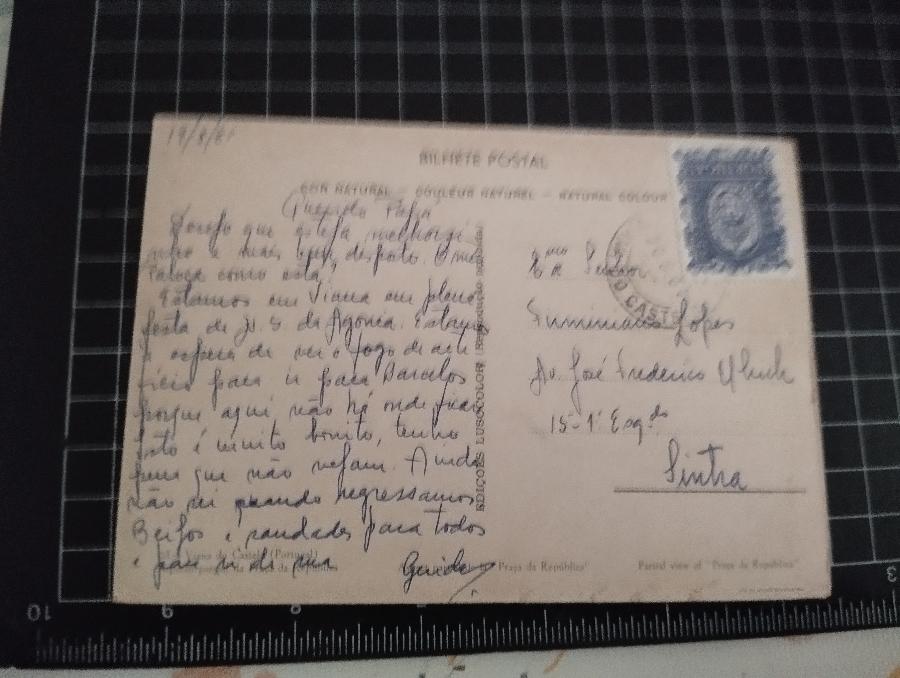 19/8/61
BILHETE POSTAL
COR NATURAL — COULEUR NATUREL — NATURAL COLOUR
Querido Papá
que esteja
e mais bem disposto.
como está?
Estamos em Viana em plena
festa de N. S. da Agonia. Estamos
à espera de ver o fogo de arti
fício para ir para Barcelos
porque aqui não há onde ficar
Isto é muito bonito, tenho
pena que não vejam. Ainda
não sei quando regressamos
Beijos e saudades para todos
e para si da sua
Guida
EDIÇÕES LUSOCOLOR (Reprodução
Viana do Castelo (Portugal)
da Praça da República
Praça da República"
Partial view of "Praça da República"
O CASTE
Exmo Senhor
Lopes
Av. José Frederico Ulrich
15-1º Esqdo
Sintra
10 9 8 3